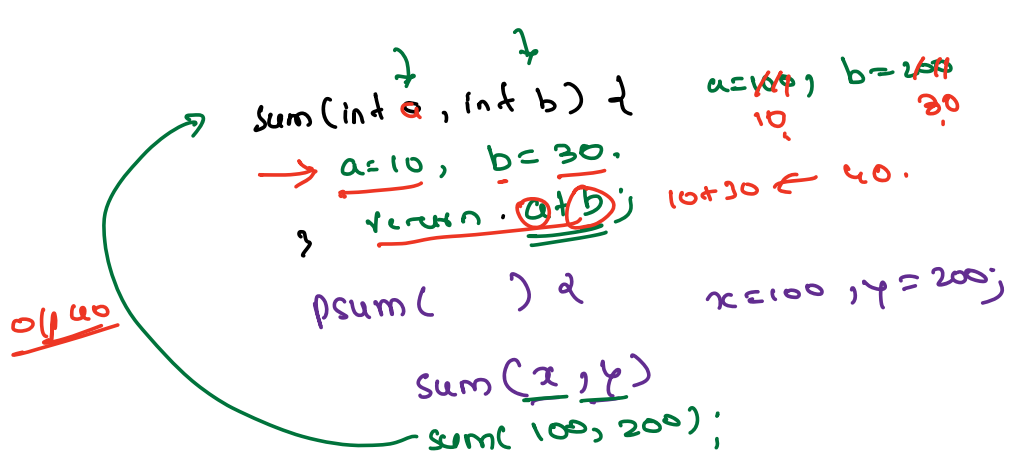 sum(int a, int b) {
a=100, b=200
10 30
→ a=10, b=30.
return . a+b;
10+30 ← 40.
}
psum( ) {
x=100, y=200;
o/p 40
sum(x, y)
sum(100, 200);